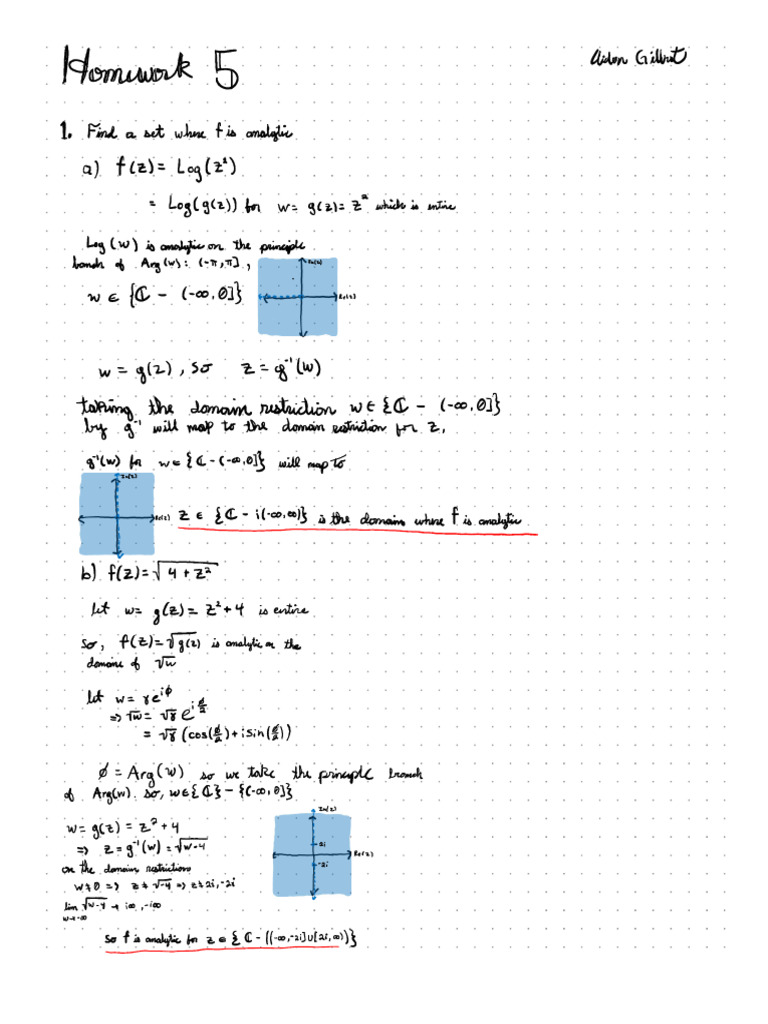 Homework 5
Aidan Gilbert
1. Find a set where f is analytic
a) f(z) = Log(z²)
= Log(g(z)) for w = g(z) = z² which is entire
Log(w) is analytic on the principle
banch of Arg(w): (-π, π],
Im(z)
Re(z)
w ∈ {ℂ - (-∞, 0]}
w = g(z), so z = g⁻¹(w)
taking the domain restriction w ∈ {ℂ - (-∞, 0]}
by g⁻¹ will map to the domain restriction for z,
g⁻¹(w) for w ∈ {ℂ - (-∞, 0]} will map to
Im(z)
Re(z)
z ∈ {ℂ - i(-∞, ∞)} is the domain where f is analytic
b) f(z) = √(4 + z²)
let w = g(z) = z² + 4 is entire
so, f(z) = √g(z) is analytic on the
domaine of √w
let w = re^{iϕ}
=> √w = √r e^{i ϕ/2}
= √r (cos(ϕ/2) + i sin(ϕ/2))
ϕ = Arg(w) so we take the principle branch
of Arg(w). so, w ∈ {ℂ} - {(-∞, 0]}
w = g(z) = z² + 4
=> z = g⁻¹(w) = √(w-4)
Im(z)
2i
Re(z)
-2i
on the domain restrictions
w ≠ 0 => z ≠ √-4 => z ≠ 2i, -2i
lim √(w-4) → i∞, -i∞
w→-∞
So f is analytic for z ∈ {ℂ - ((-∞, -2i] ∪ [2i, ∞))}